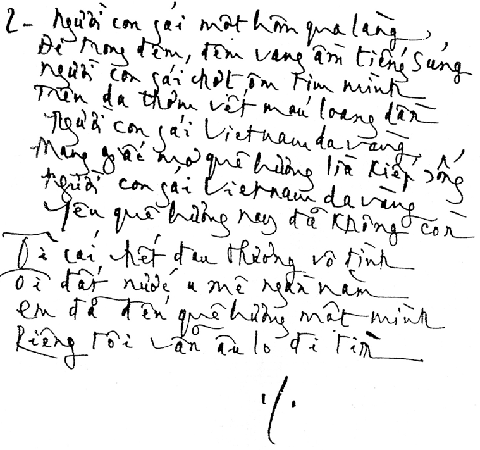 2- Người con gái một hôm qua làng
Đi trong đêm, đêm vang ầm tiếng súng
người con gái chợt ôm tim mình
Trên da thơm vết máu loang dần
Người con gái Việt nam da vàng
Mang giấc mơ quê hương lìa kiếp sống
người con gái Việt nam da vàng
Yêu quê hương nay đã không còn
Ôi cái chết đau thương vô tình
Ôi đất nước u mê ngàn năm
em đã đến quê hương một mình
Riêng tôi vẫn âu lo đi tìm
./.